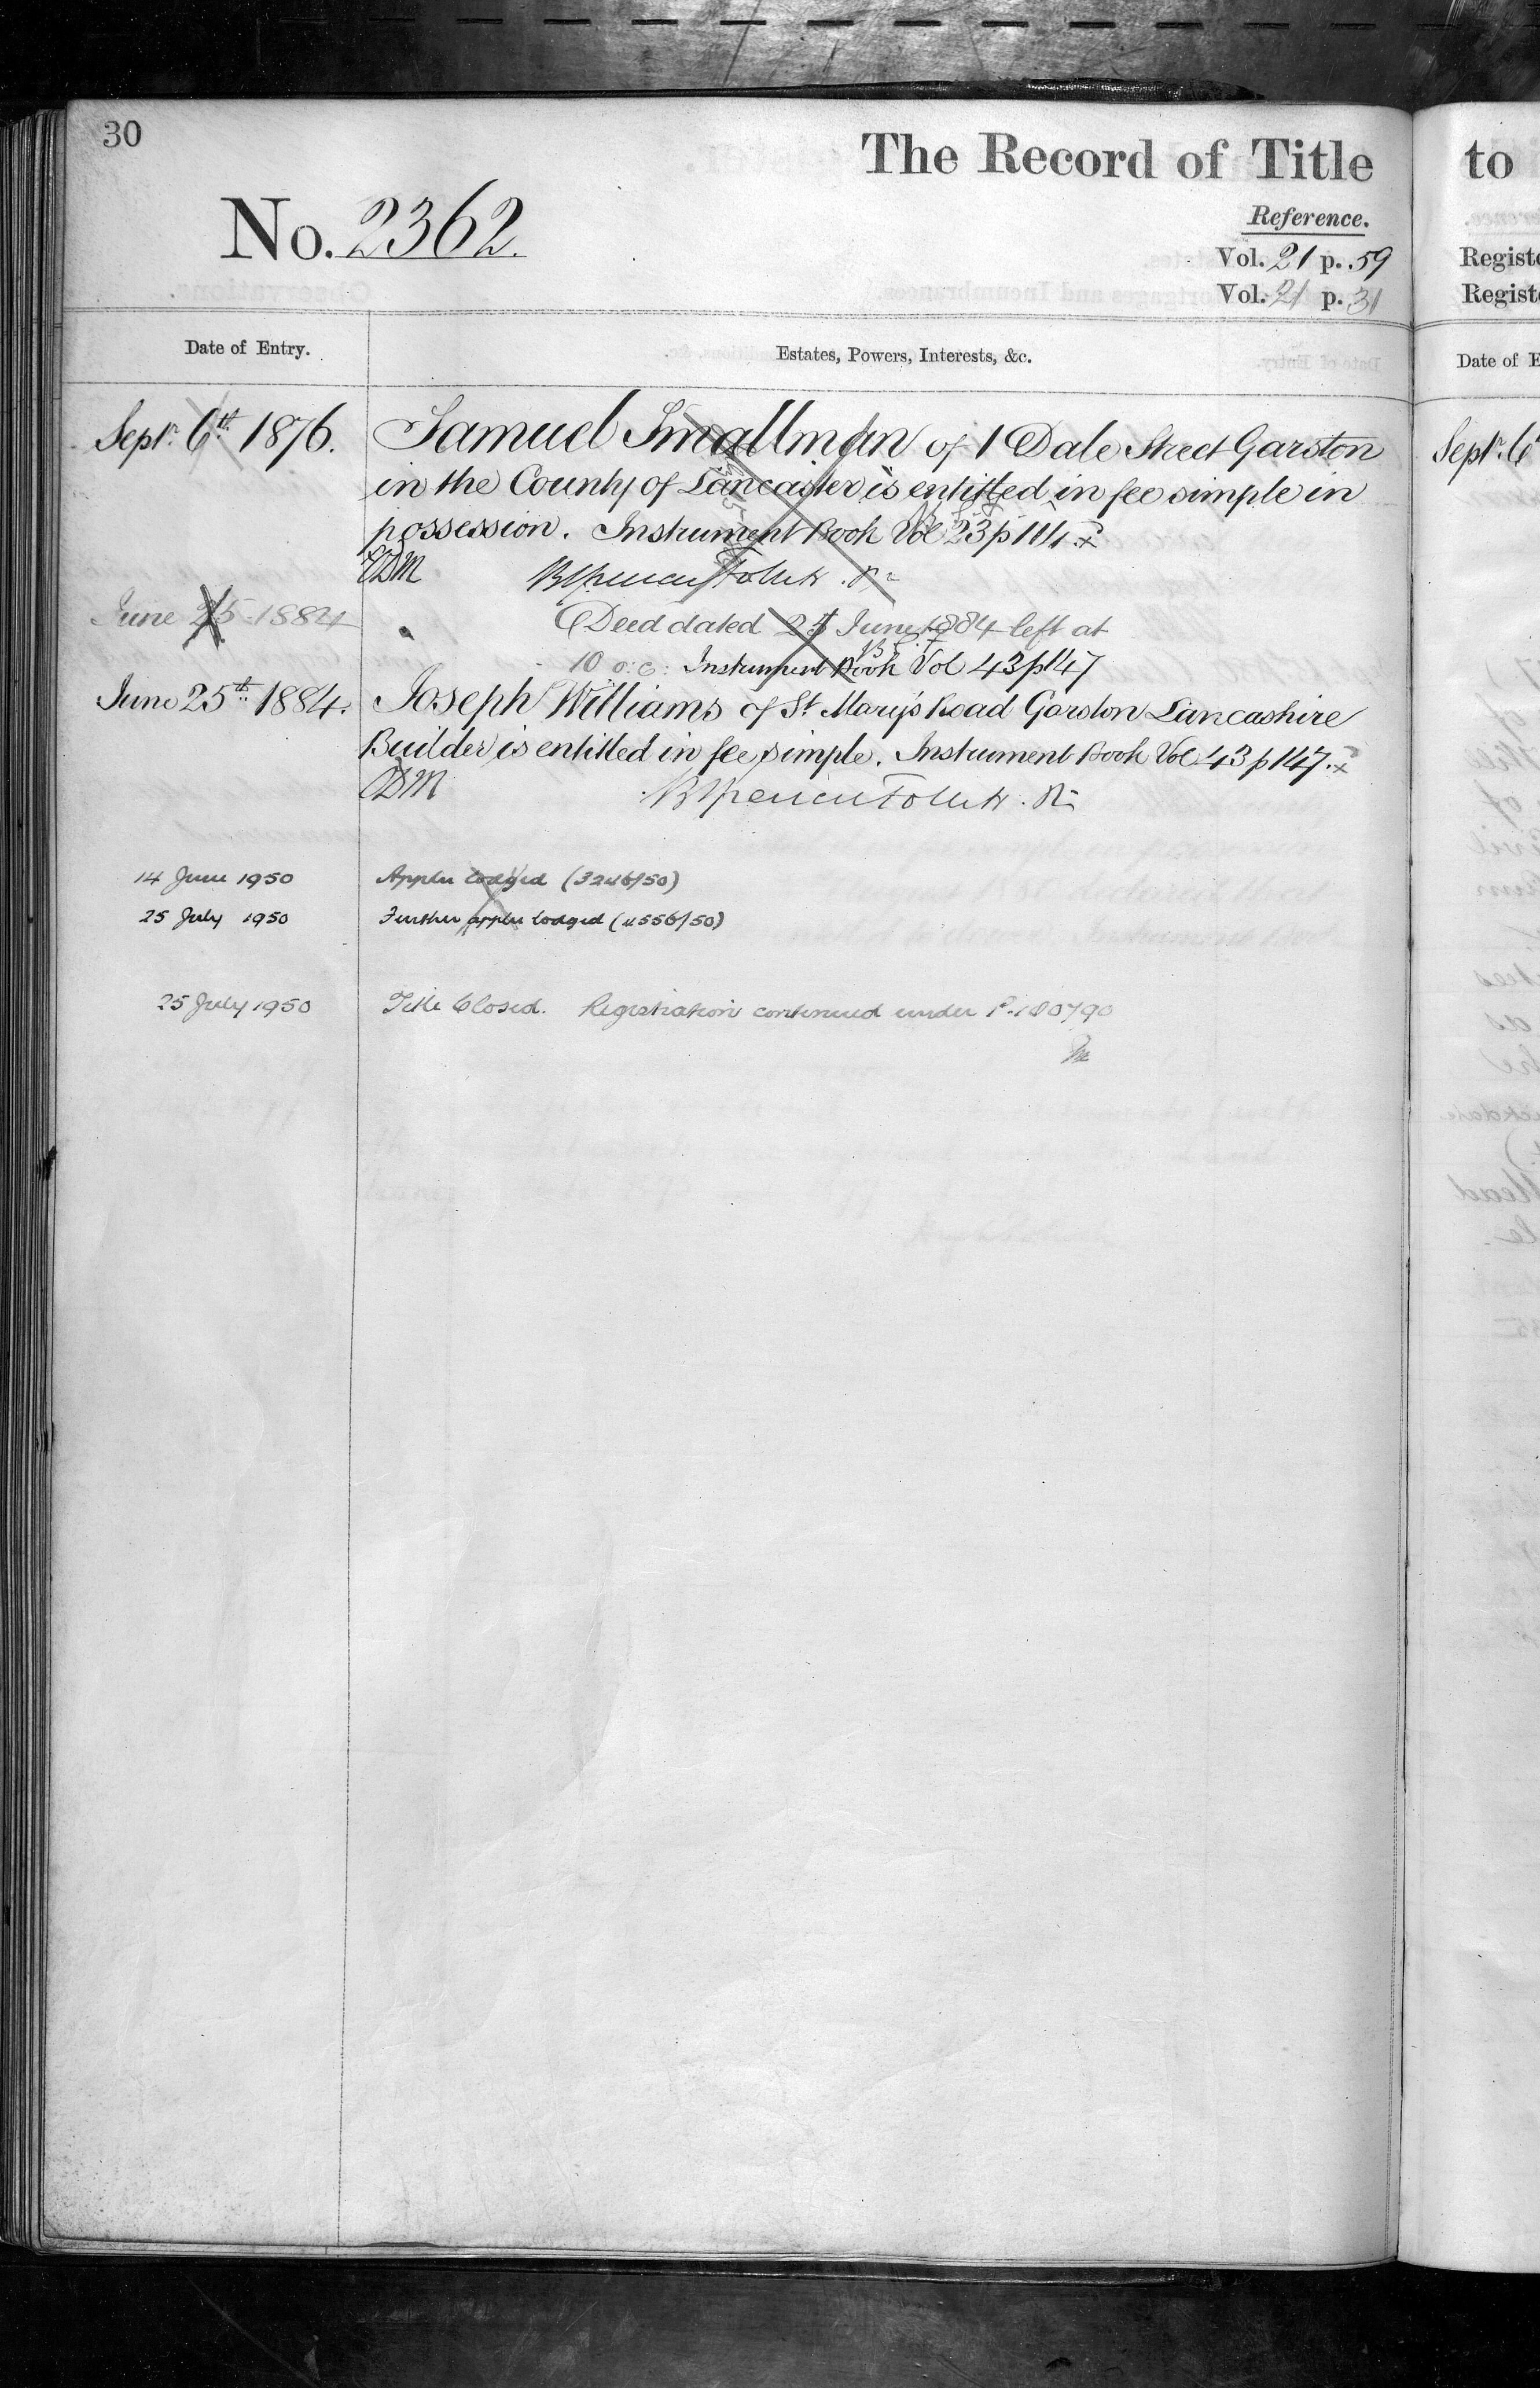 30
The Record of Title
to
No. 2362.
Reference.
Vol. 21 p. 59
Vol. 21 p. 31
Regist
Regist
Date of Entry.
Estates, Powers, Interests, &c.
Date of E
Septr. 6th 1876.
Samuel Smallman of 1 Dale Street Garston
in the County of Lancaster is entitled in fee simple in
possession. Instrument Book Vol 23 p 114
June 25 1884
Deed dated 24 June 1884 left at
10 o.c. Instrument Book Vol 43 p 147
June 25th 1884.
Joseph Williams of St Mary's Road Garston Lancashire
Builder is entitled in fee simple. Instrument Book Vol 43 p 147.
14 June 1950
Appln lodged (3246/50)
25 July 1950
Further appln lodged (4556/50)
25 July 1950
Title Closed. Registration continued under P. 180790
Septr. 6